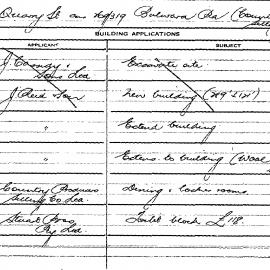 Quarry St and 269/319 Bulwara Rd (Country
BUILDING APPLICATIONS
APPLICANT SUBJECT
J. & Sons Ltd Excavate site
J. Reid & Son New building (
" Extend building
" Extens. to building (Wool
Country Producers Selling Co Ltd. Dining & locker rooms
Stuart Bros Pty Ltd. Toilet block £